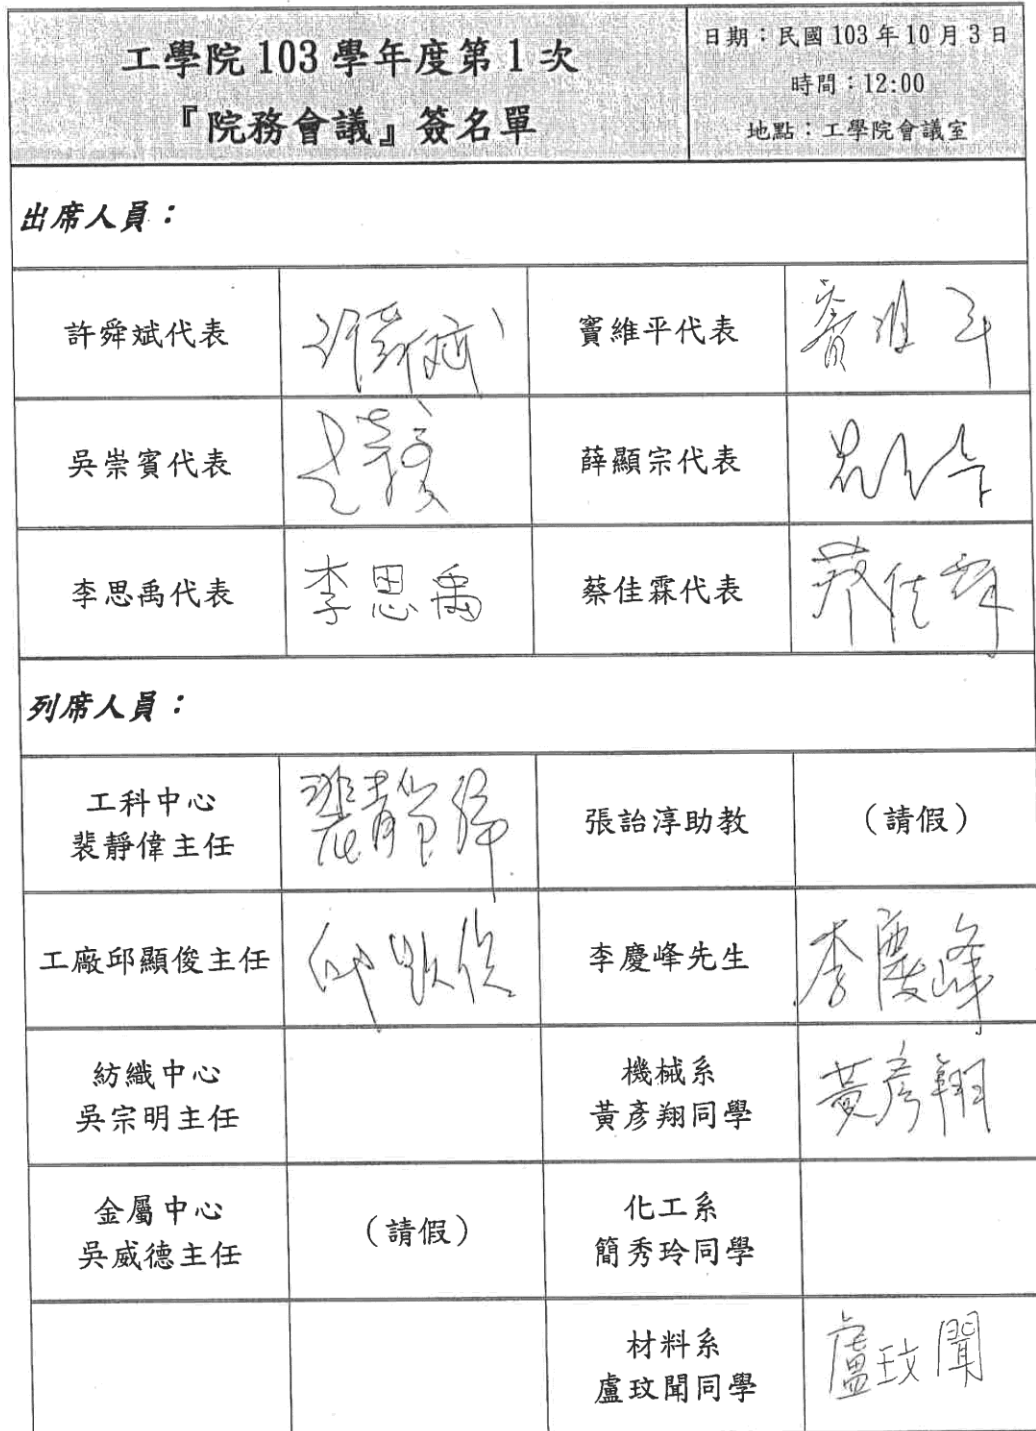 工學院 103 學年度第 1 次
『院務會議』簽名單
日期：民國 103 年 10 月 3 日
時間：12:00
地點：工學院會議室
出席人員：
許舜斌代表
竇維平代表
竇維平
吳崇賓代表
薛顯宗代表
李思禹代表
李思禹
蔡佳霖代表
蔡佳霖
列席人員：
工科中心
裴靜偉主任
裴靜偉
張詒淳助教
（請假）
工廠邱顯俊主任
邱顯俊
李慶峰先生
李慶峰
紡織中心
吳宗明主任
機械系
黃彥翔同學
黃彥翔
金屬中心
吳威德主任
（請假）
化工系
簡秀玲同學
材料系
盧玟聞同學
盧玟聞